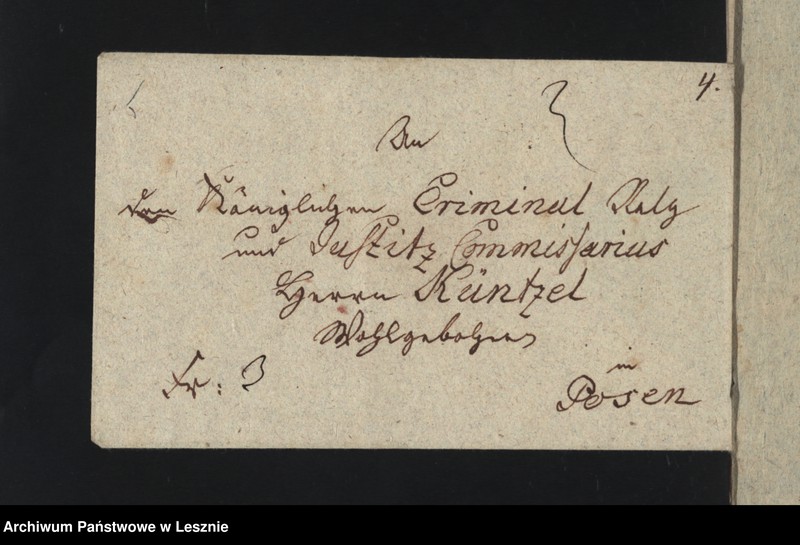 4.
An
den Königlichen Criminal Rath
und Justitz Commissarius
Herrn Küntzel
Wohlgebohren
Fr: 3
in
Posen
Archiwum Państwowe w Lesznie